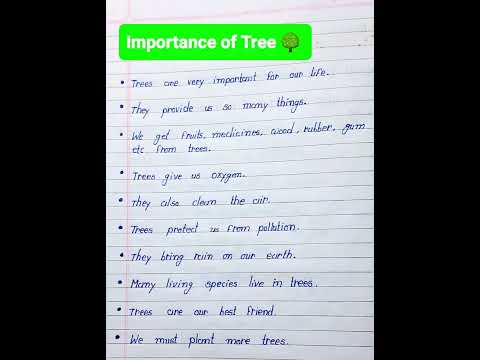 Importance of Tree 🌳
• Trees are very important for our life.
• They provide us so many things.
• We get fruits, medicines, wood, rubber, gum
etc from trees.
• Trees give us oxygen.
• They also clean the air.
• Trees protect us from pollution.
• They bring rain on our earth.
• Many living species live in trees.
• Trees are our best friend.
• We must plant more trees.